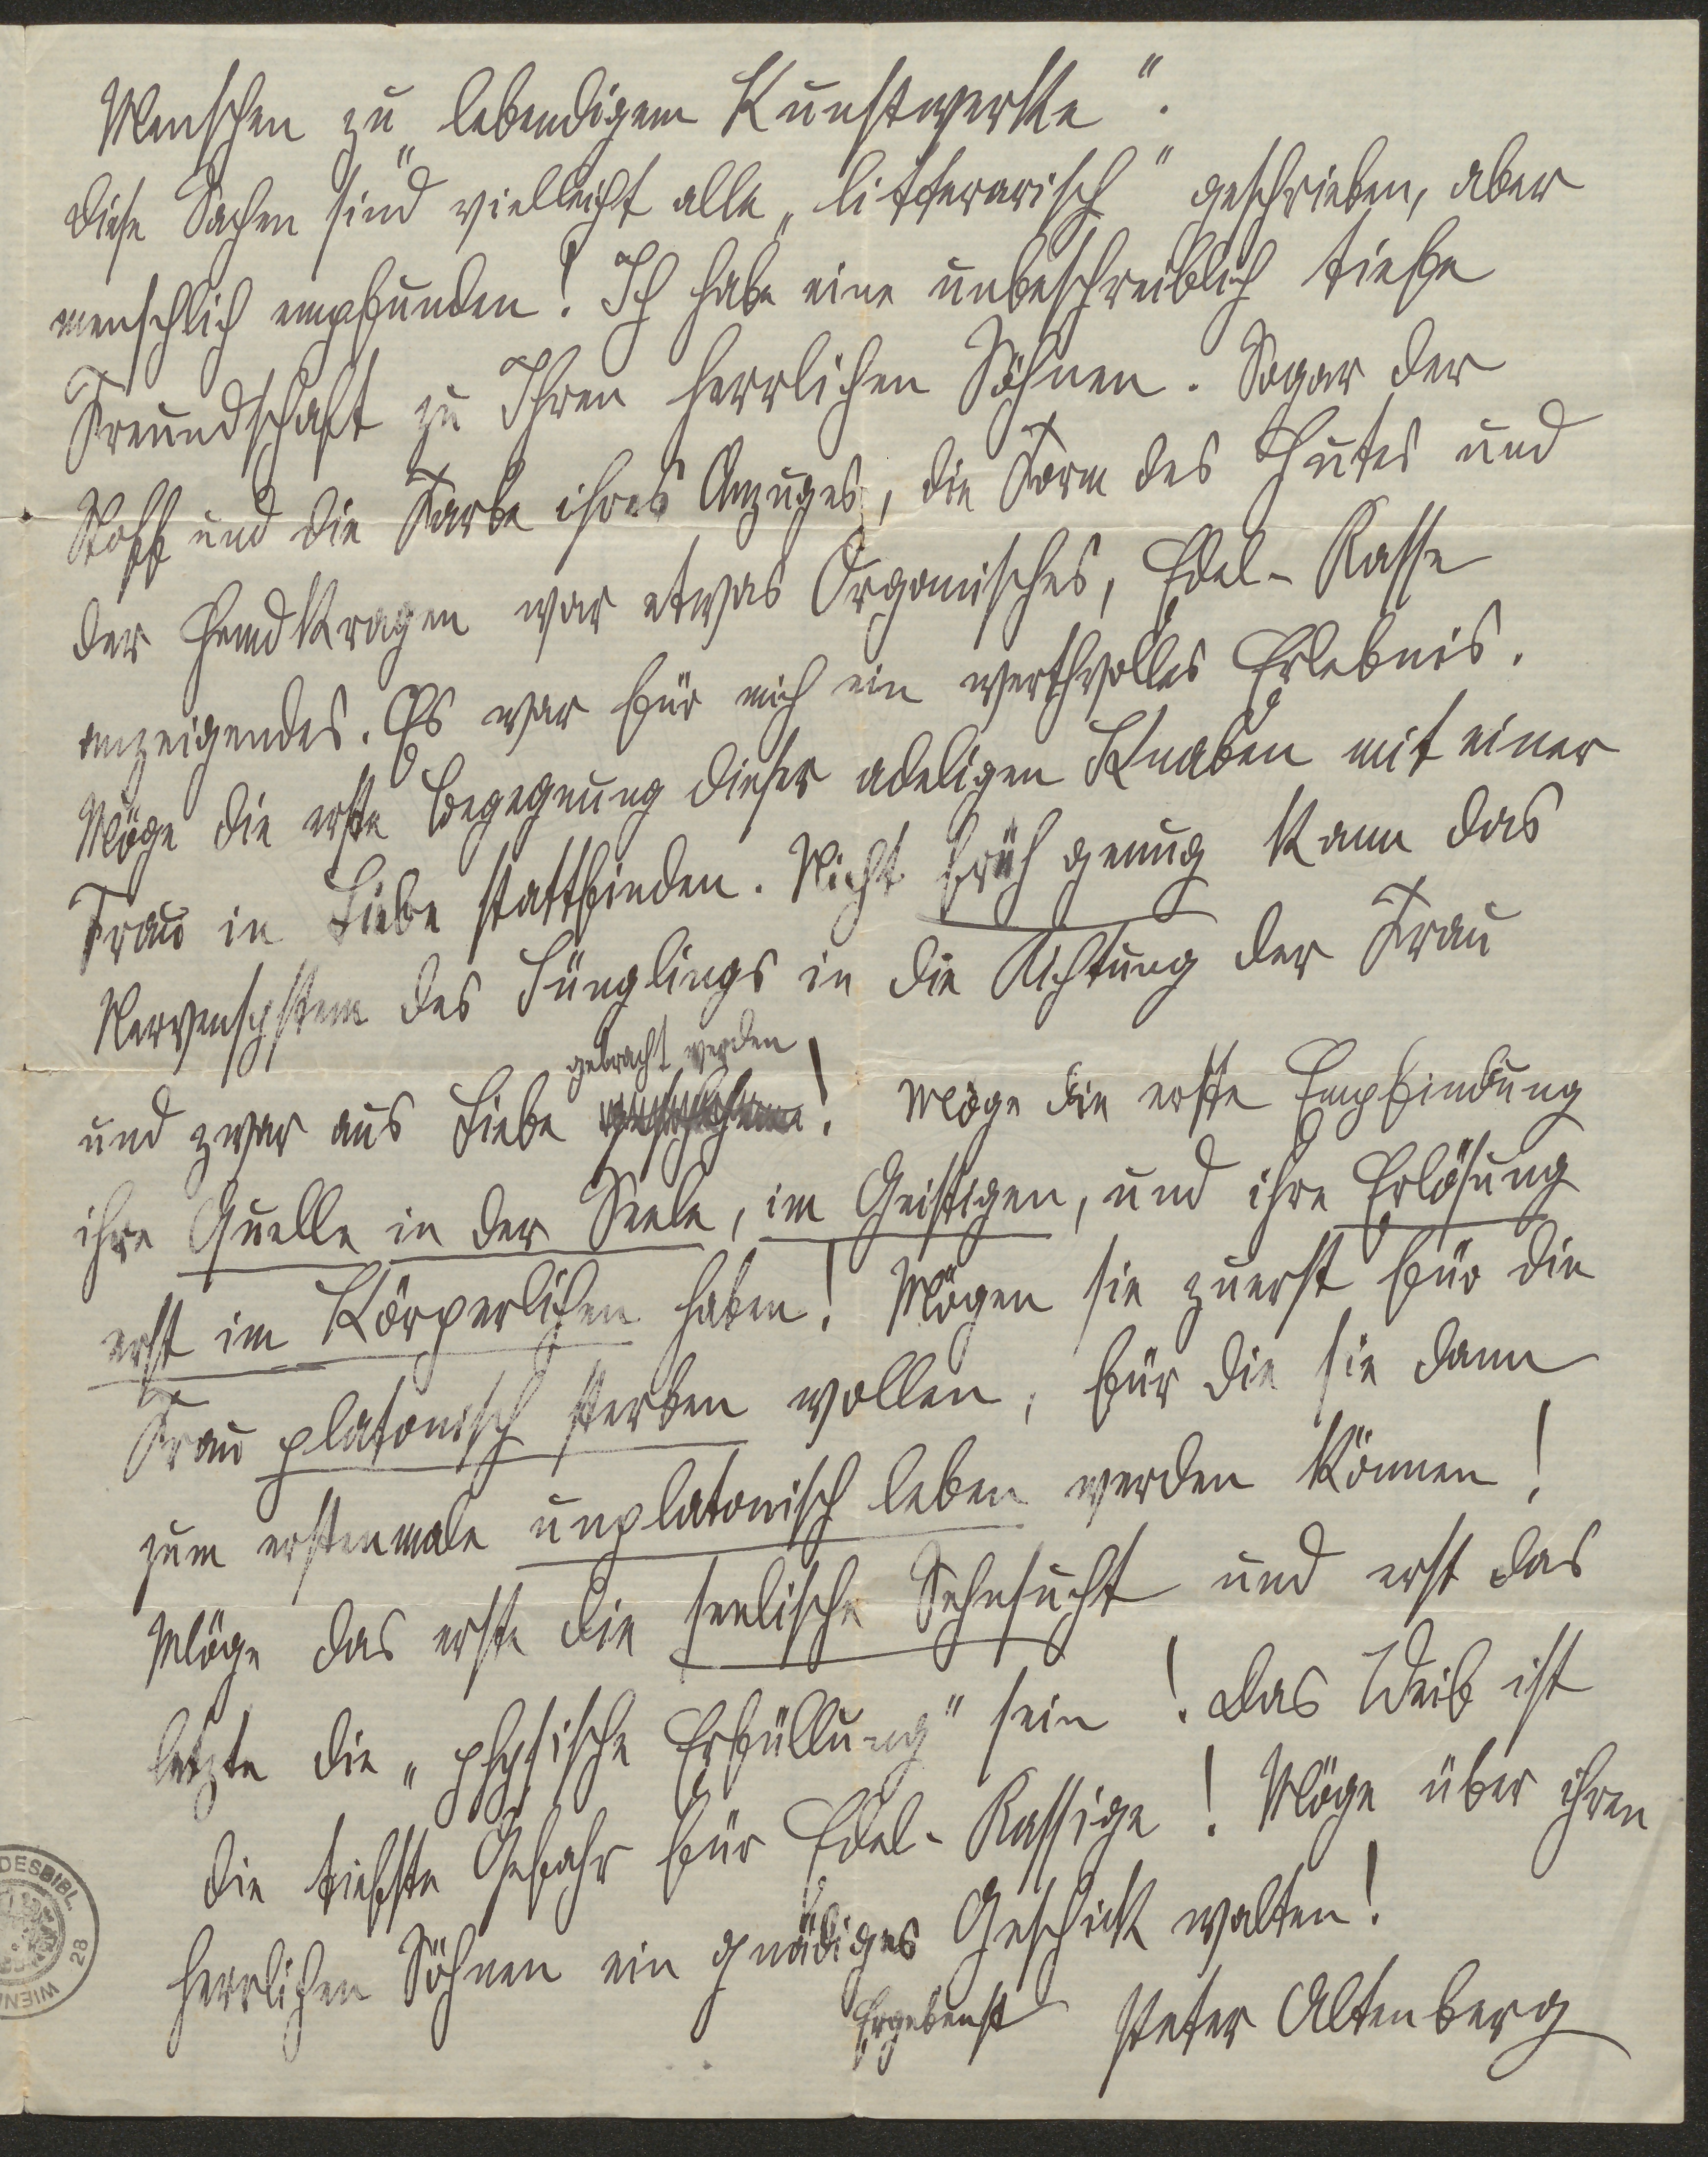 Menschen zu „lebendigem Kunstwerke“.
Diese Sachen sind vielleicht alle „litterarisch“ geschrieben, aber
menschlich empfunden! Ich habe eine unbeschreiblich tiefe
Freundschaft zu Ihren herrlichen Söhnen. Sogar der
Stoff und die Farbe ihres Anzuges, die Form des Hutes und
der Hemdkragen war etwas Organisches, Edel-Rasse
anzeigendes. Es war für mich ein werthvolles Erlebnis.
Möge die erste Begegnung dieser adeligen Knaben mit einer
Frau in Liebe stattfinden. Nicht früh genug kann das
Nervensystem des Jünglings in die Richtung der Frau
gebracht werden
und zwar aus Liebe! Möge die erste Empfindung
ihre Quelle in der Seele, im Geistigen, und ihre Erlösung
erst im Körperlichen haben! Mögen sie zuerst für die
Frau platonisch sterben wollen, für die sie dann
zum erstenmale unplatonisch leben werden können!
Möge das erste die seelische Sehnsucht und erst das
letzte die „physische Erfüllung“ sein! Das Weib ist
die tiefste Gefahr für Edel-Rassige! Möge über ihren
herrlichen Söhnen ein gnädiges Geschick walten!
Ergebenst Peter Altenberg
DESBIBL.
28
WIEN